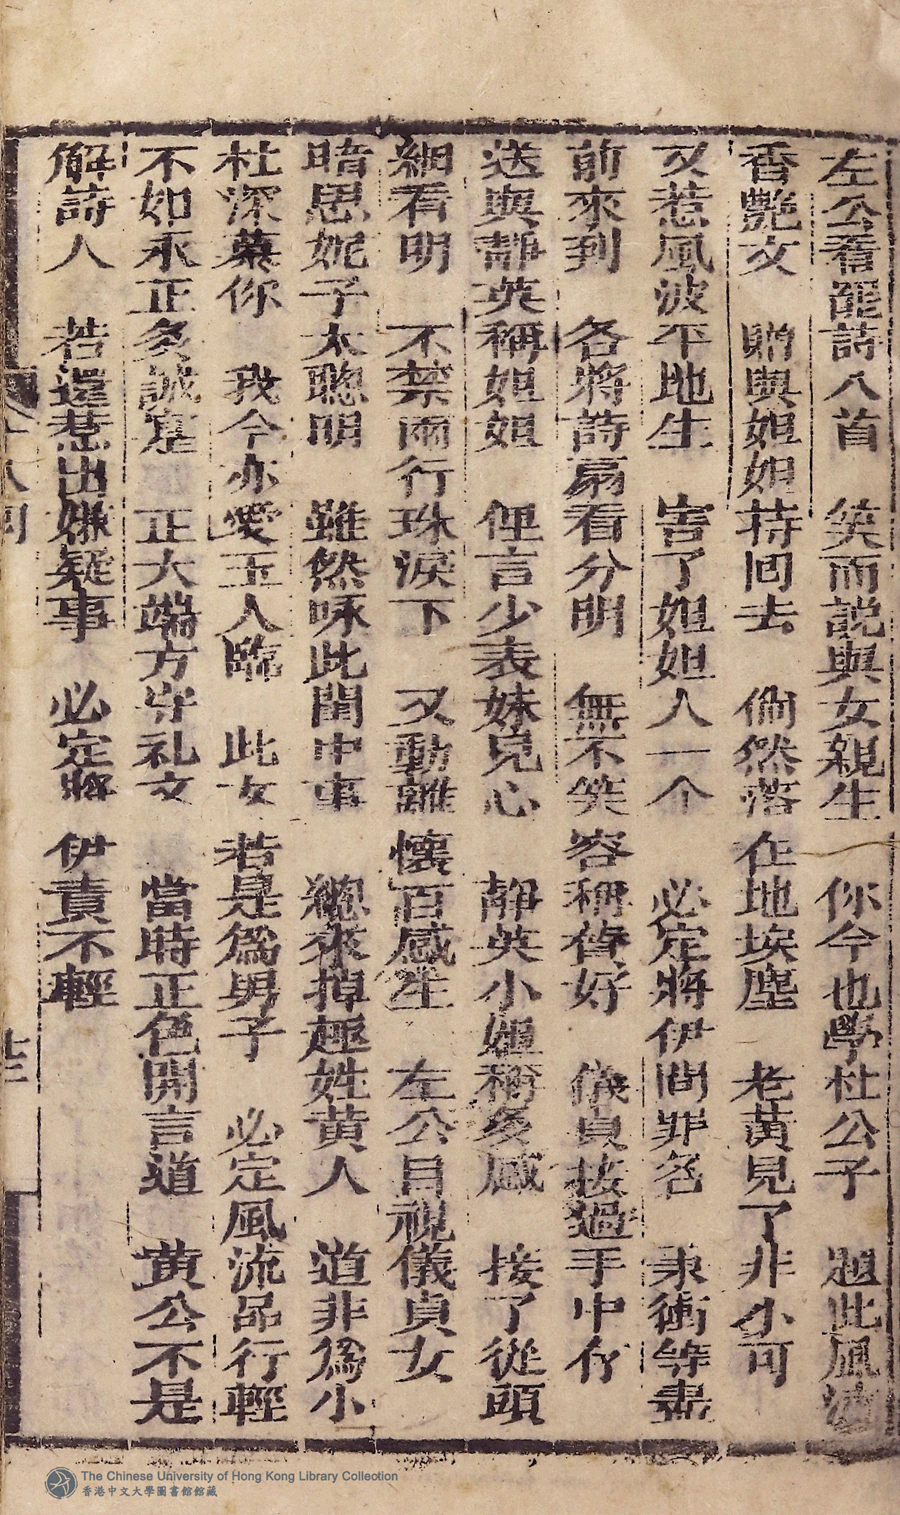 左公看罷詩八首 笑而說與女親生 你今也學杜公子 題此風流
香艷文 贈與姐姐持回去 倘然落在地埃塵 老黃見了非小可
又惹風波平地生 害了姐姐人一个 必定將伊問罪名 秉衡等盡
前來到 各將詩扇看分明 無不笑容稱贊好 儀貞接過手中存
送與靜英稱姐姐 俚言少表妹兒心 靜英小姐稱多感 接了從頭
細看明 不禁兩行珠淚下 又動離懷百感生 左公目視儀貞女
暗思妮子太聰明 雖然咏此閨中事 總來掉趣姓黃人 道非為小
杜深慕你 我今亦愛玉人臨 此女若是為男子 必定風流品行輕
不如永正多誠寔 正大端方守礼文 當時正色開言道 黃公不是
解詩人 若還惹出嫌疑事 必定將伊責不輕
十八回
廿三
The Chinese University of Hong Kong Library Collection
香港中文大學圖書館館藏